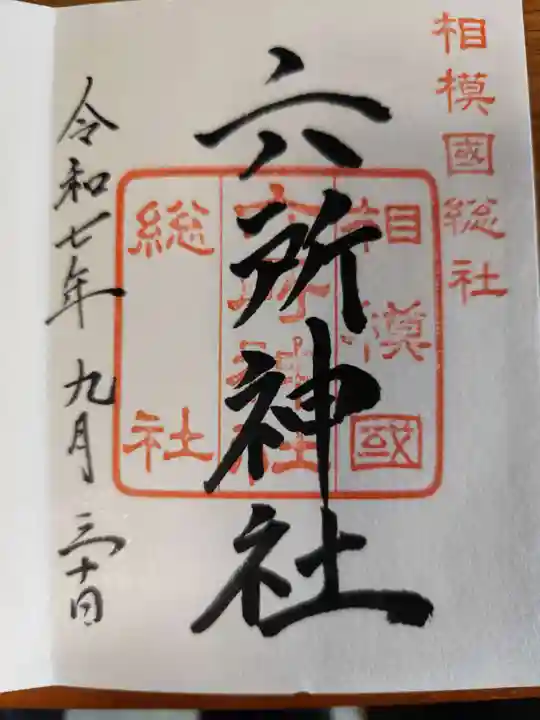 相模國総社
六所神社
相模國
六所神社
総社
令和七年九月三十日